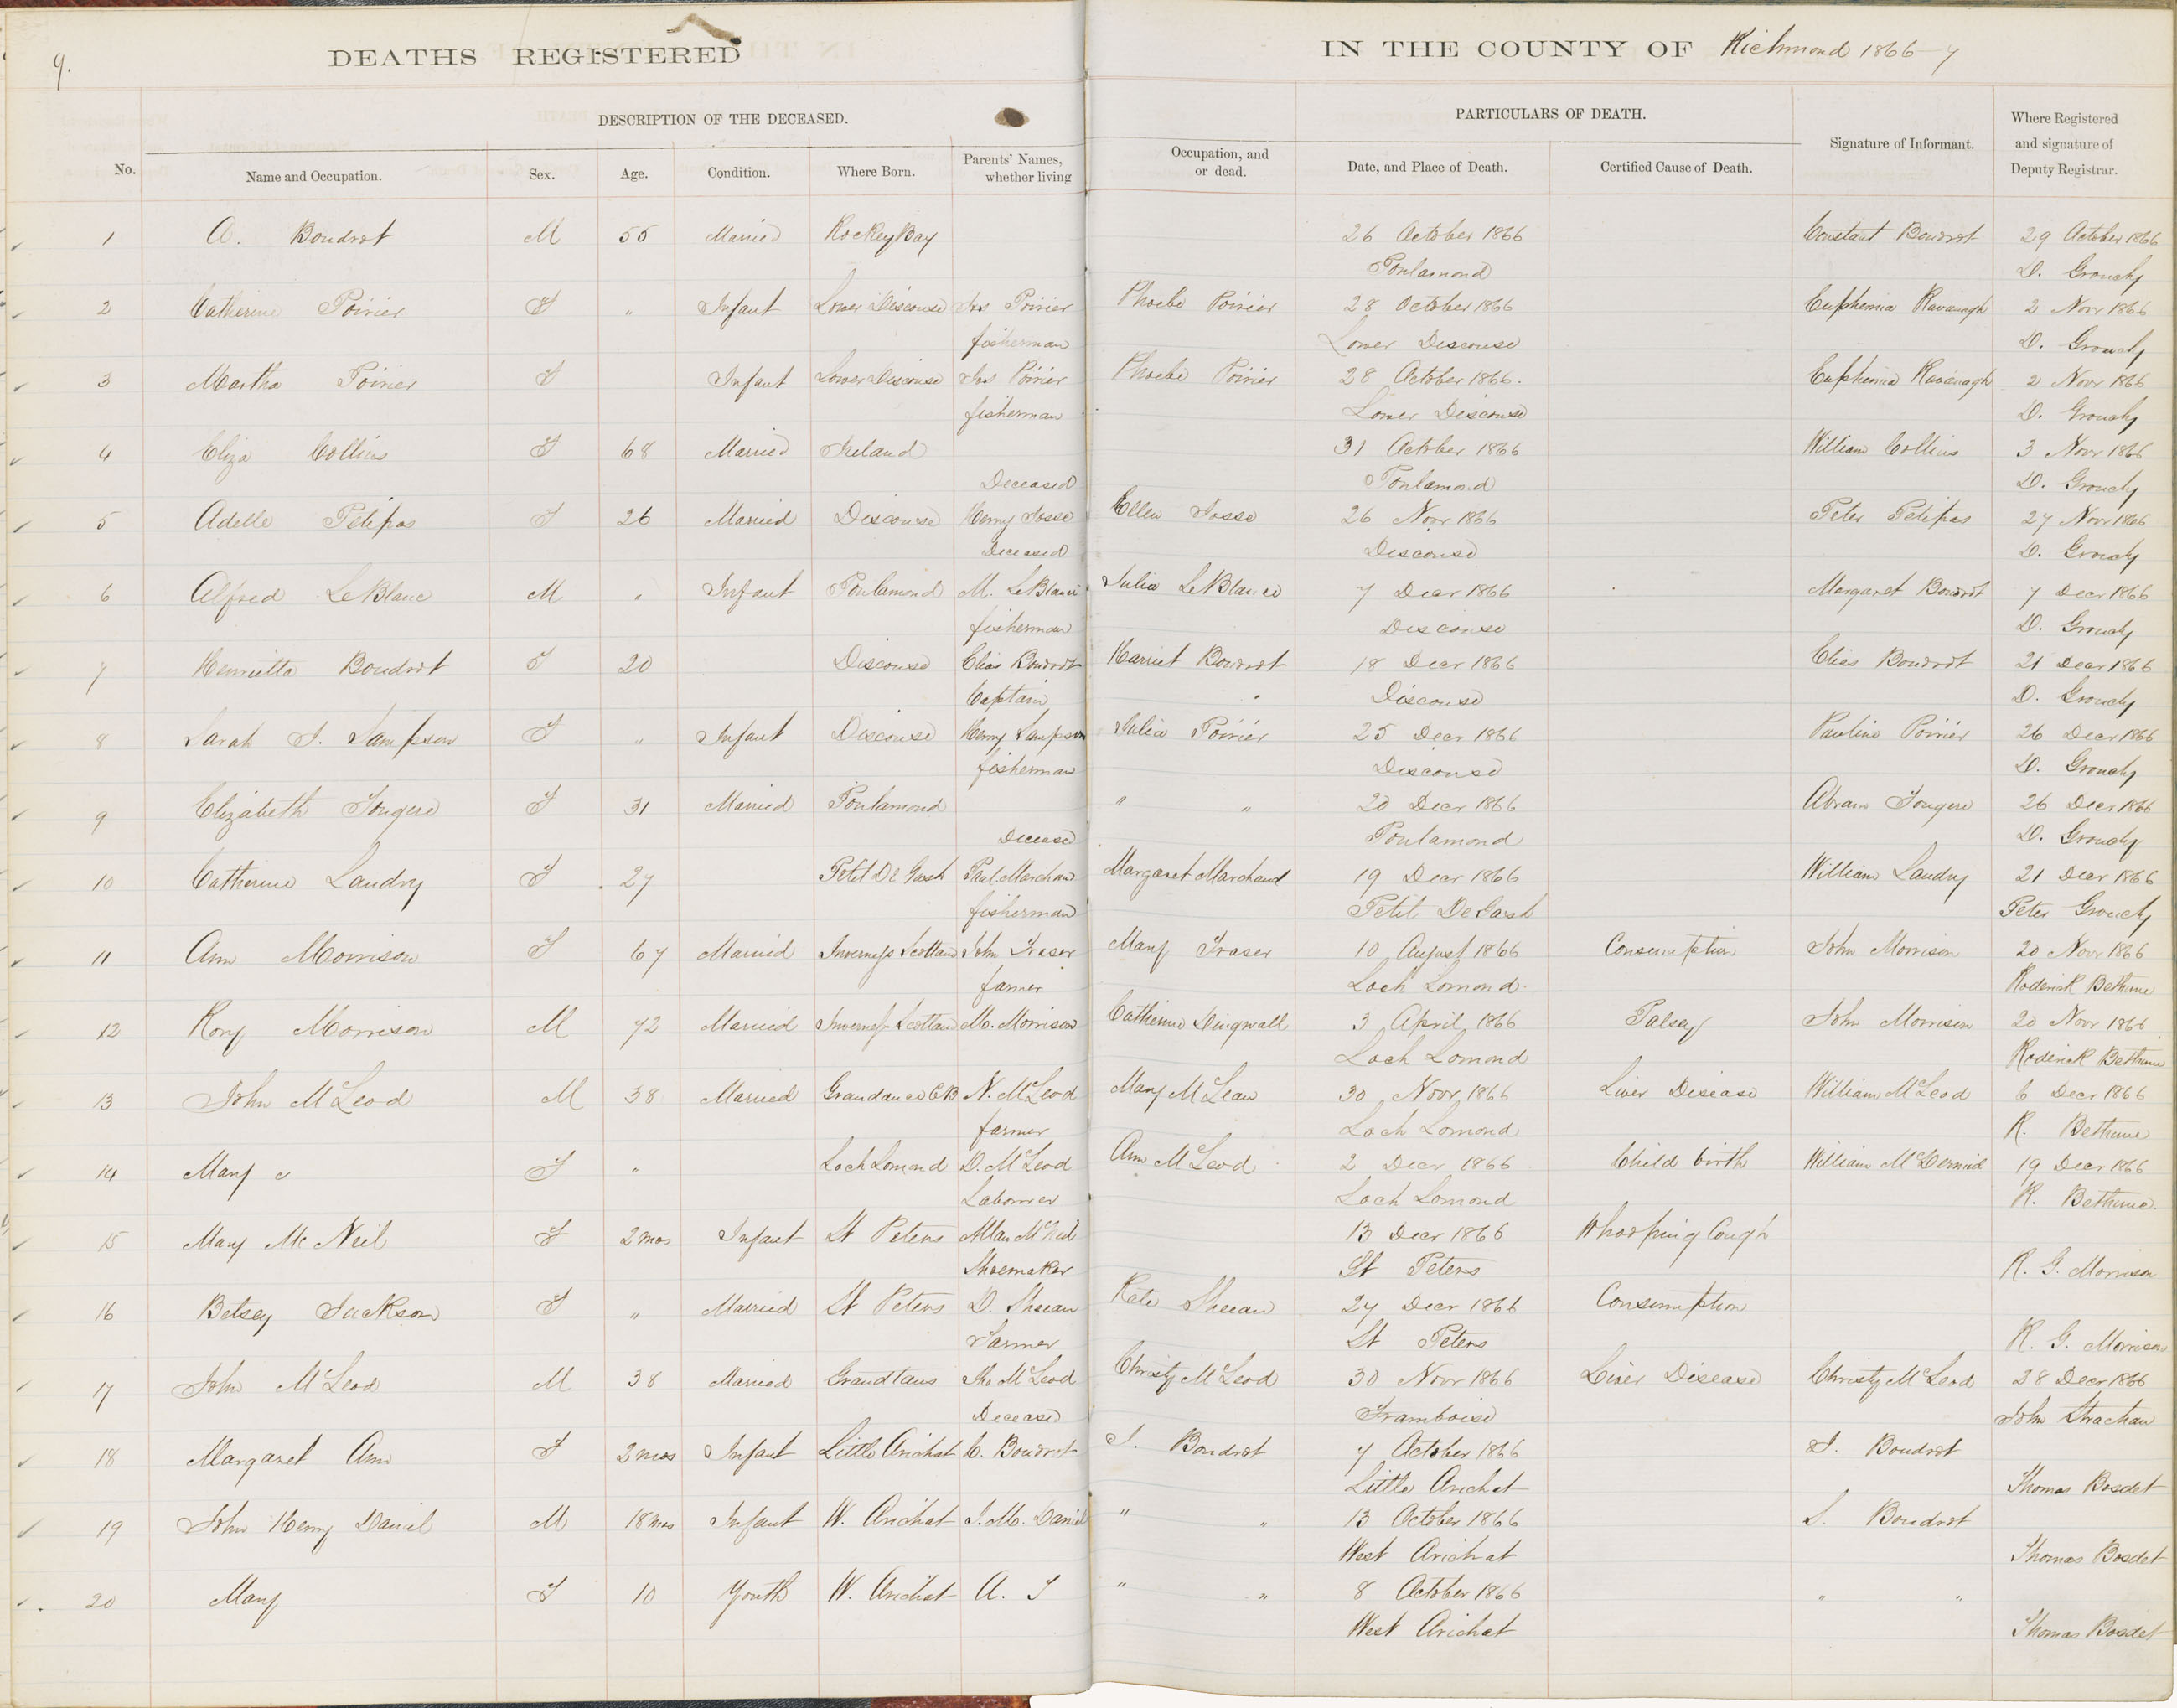 9.
DEATHS REGISTERED IN THE COUNTY OF Richmond 1866-7
DESCRIPTION OF THE DECEASED. PARTICULARS OF DEATH.
No. Name and Occupation. Sex. Age. Condition. Where Born. Parents' Names, whether living Occupation, and or dead. Date, and Place of Death. Certified Cause of Death. Signature of Informant. Where Registered and signature of Deputy Registrar.
1 A. Boudrot M 55 Married Rockey Bay 26 October 1866 Constant Boudrot 29 October 1866
Poulamond D. Grouchy
2 Catherine Poirier F " Infant Lower Discouse Jos Poirier Phoebe Poirier 28 October 1866 Euphemia Kavanagh 2 Novr 1866
fisherman Lower Discouse D. Grouchy
3 Martha Poirier F Infant Lower Discouse Jos Poirier Phoebe Poirier 28 October 1866. Euphemia Kavanagh 2 Novr 1866
fisherman Lower Discouse D. Grouchy
4 Eliza Collins F 68 Married Ireland 31 October 1866 William Collins 3 Novr 1866
Deceased Poulamond D. Grouchy
5 Adelle Petipas F 26 Married Discouse Henry Josse Ellen Josse 26 Novr 1866 Peter Petipas 27 Novr 1866
Deceased Discouse D. Grouchy
6 Alfred LeBlanc M " Infant Poulamond M. LeBlanc Julia LeBlanc 7 Decr 1866 Margaret Boudrot 7 Decr 1866
fisherman Discouse D. Grouchy
7 Henrietta Boudrot F 20 Discouse Elias Boudrot Harriet Boudrot 18 Decr 1866 Elias Boudrot 21 Decr 1866
Captain Discouse D. Grouchy
8 Sarah J. Sampson F " Infant Discouse Henry Sampson Julia Poirier 25 Decr 1866 Pauline Poirier 26 Decr 1866
fisherman Discouse D. Grouchy
9 Elizabeth Fougere F 31 Married Poulamond " " 20 Decr 1866 Abram Fougere 26 Decr 1866
Deceased Poulamond D. Grouchy
10 Catherine Landry F 27 Petit De Gash Paul Marchan Margaret Marchand 19 Decr 1866 William Landry 21 Decr 1866
fisherman Petit De Gash Peter Grouchy
11 Ann Morrison F 67 Married Inverness Scotland John Fraser Mary Fraser 10 August 1866 Consumption John Morrison 20 Novr 1866
farmer Loch Lomond Roderick Bethune
12 Rory Morrison M 72 Married Inverness Scotland M. Morrison Catherine Dingwall 3 April 1866 Palsey John Morrison 20 Novr 1866
Loch Lomond Roderick Bethune
13 John McLeod M 38 Married Grandance CB N. McLeod Mary McLean 30 Novr 1866 Liver Disease William McLeod 6 Decr 1866
farmer Loch Lomond R. Bethune
14 Mary F " Loch Lomond D. McLeod Ann McLeod 2 Decr 1866 Child birth William McDermid 19 Decr 1866
Labourer Loch Lomond R. Bethune.
15 Mary Mc Neil F 2 mos Infant St Peters Allan McNeil 13 Decr 1866 Whooping Cough
Shoemaker St Peters R. G. Morrison
16 Betsey Jackson F " Married St Peters D. Sheean Kate Sheean 27 Decr 1866 Consumption
Farmer St Peters R. G. Morrison
17 John McLeod M 38 Married Grandtans Jho McLeod Christy McLeod 30 Novr 1866 Liver Disease Christy McLeod 28 Decr 1866
Deceased Framboise John Strachan
18 Margaret Ann F 2 mos Infant Little Arichat C. Boudrot S. Boudrot 7 October 1866 S. Boudrot
Little Arichat Thomas Bosdet
19 John Henry Daniel M 18 mos Infant W. Arichat J. M. Daniel " " 13 October 1866 S. Boudrot
West Arichat Thomas Bosdet
20 Mary F 10 Youth W. Arichat A. F " " 8 October 1866 " "
West Arichat Thomas Bosdet